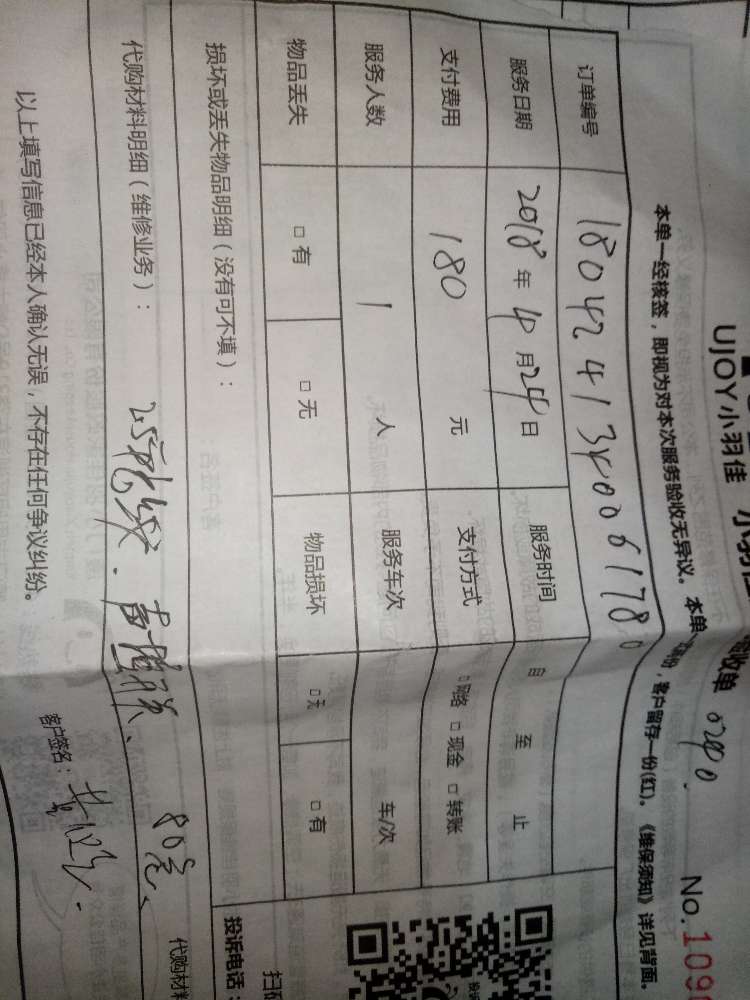 UJOY小羽佳
收单
No.109
本单一经核签，即视为对本次服务验收无异议。本单 ，客户留存一份(红)。《维保须知》详见背面。
订单编号 180424134006178
服务日期 2018年4月24日 服务时间 自 至 止
支付费用 180 元 支付方式 □网络 □现金 □转账
服务人数 1 人 服务车次 车/次
物品丢失 □有 □无 物品损坏 □无 □有
损坏或丢失物品明细（没有可不填）：
代购材料明细（维修业务）： 80元
代购材料
以上填写信息已经本人确认无误，不存在任何争议纠纷。
客户签名：
投诉电话：
扫码